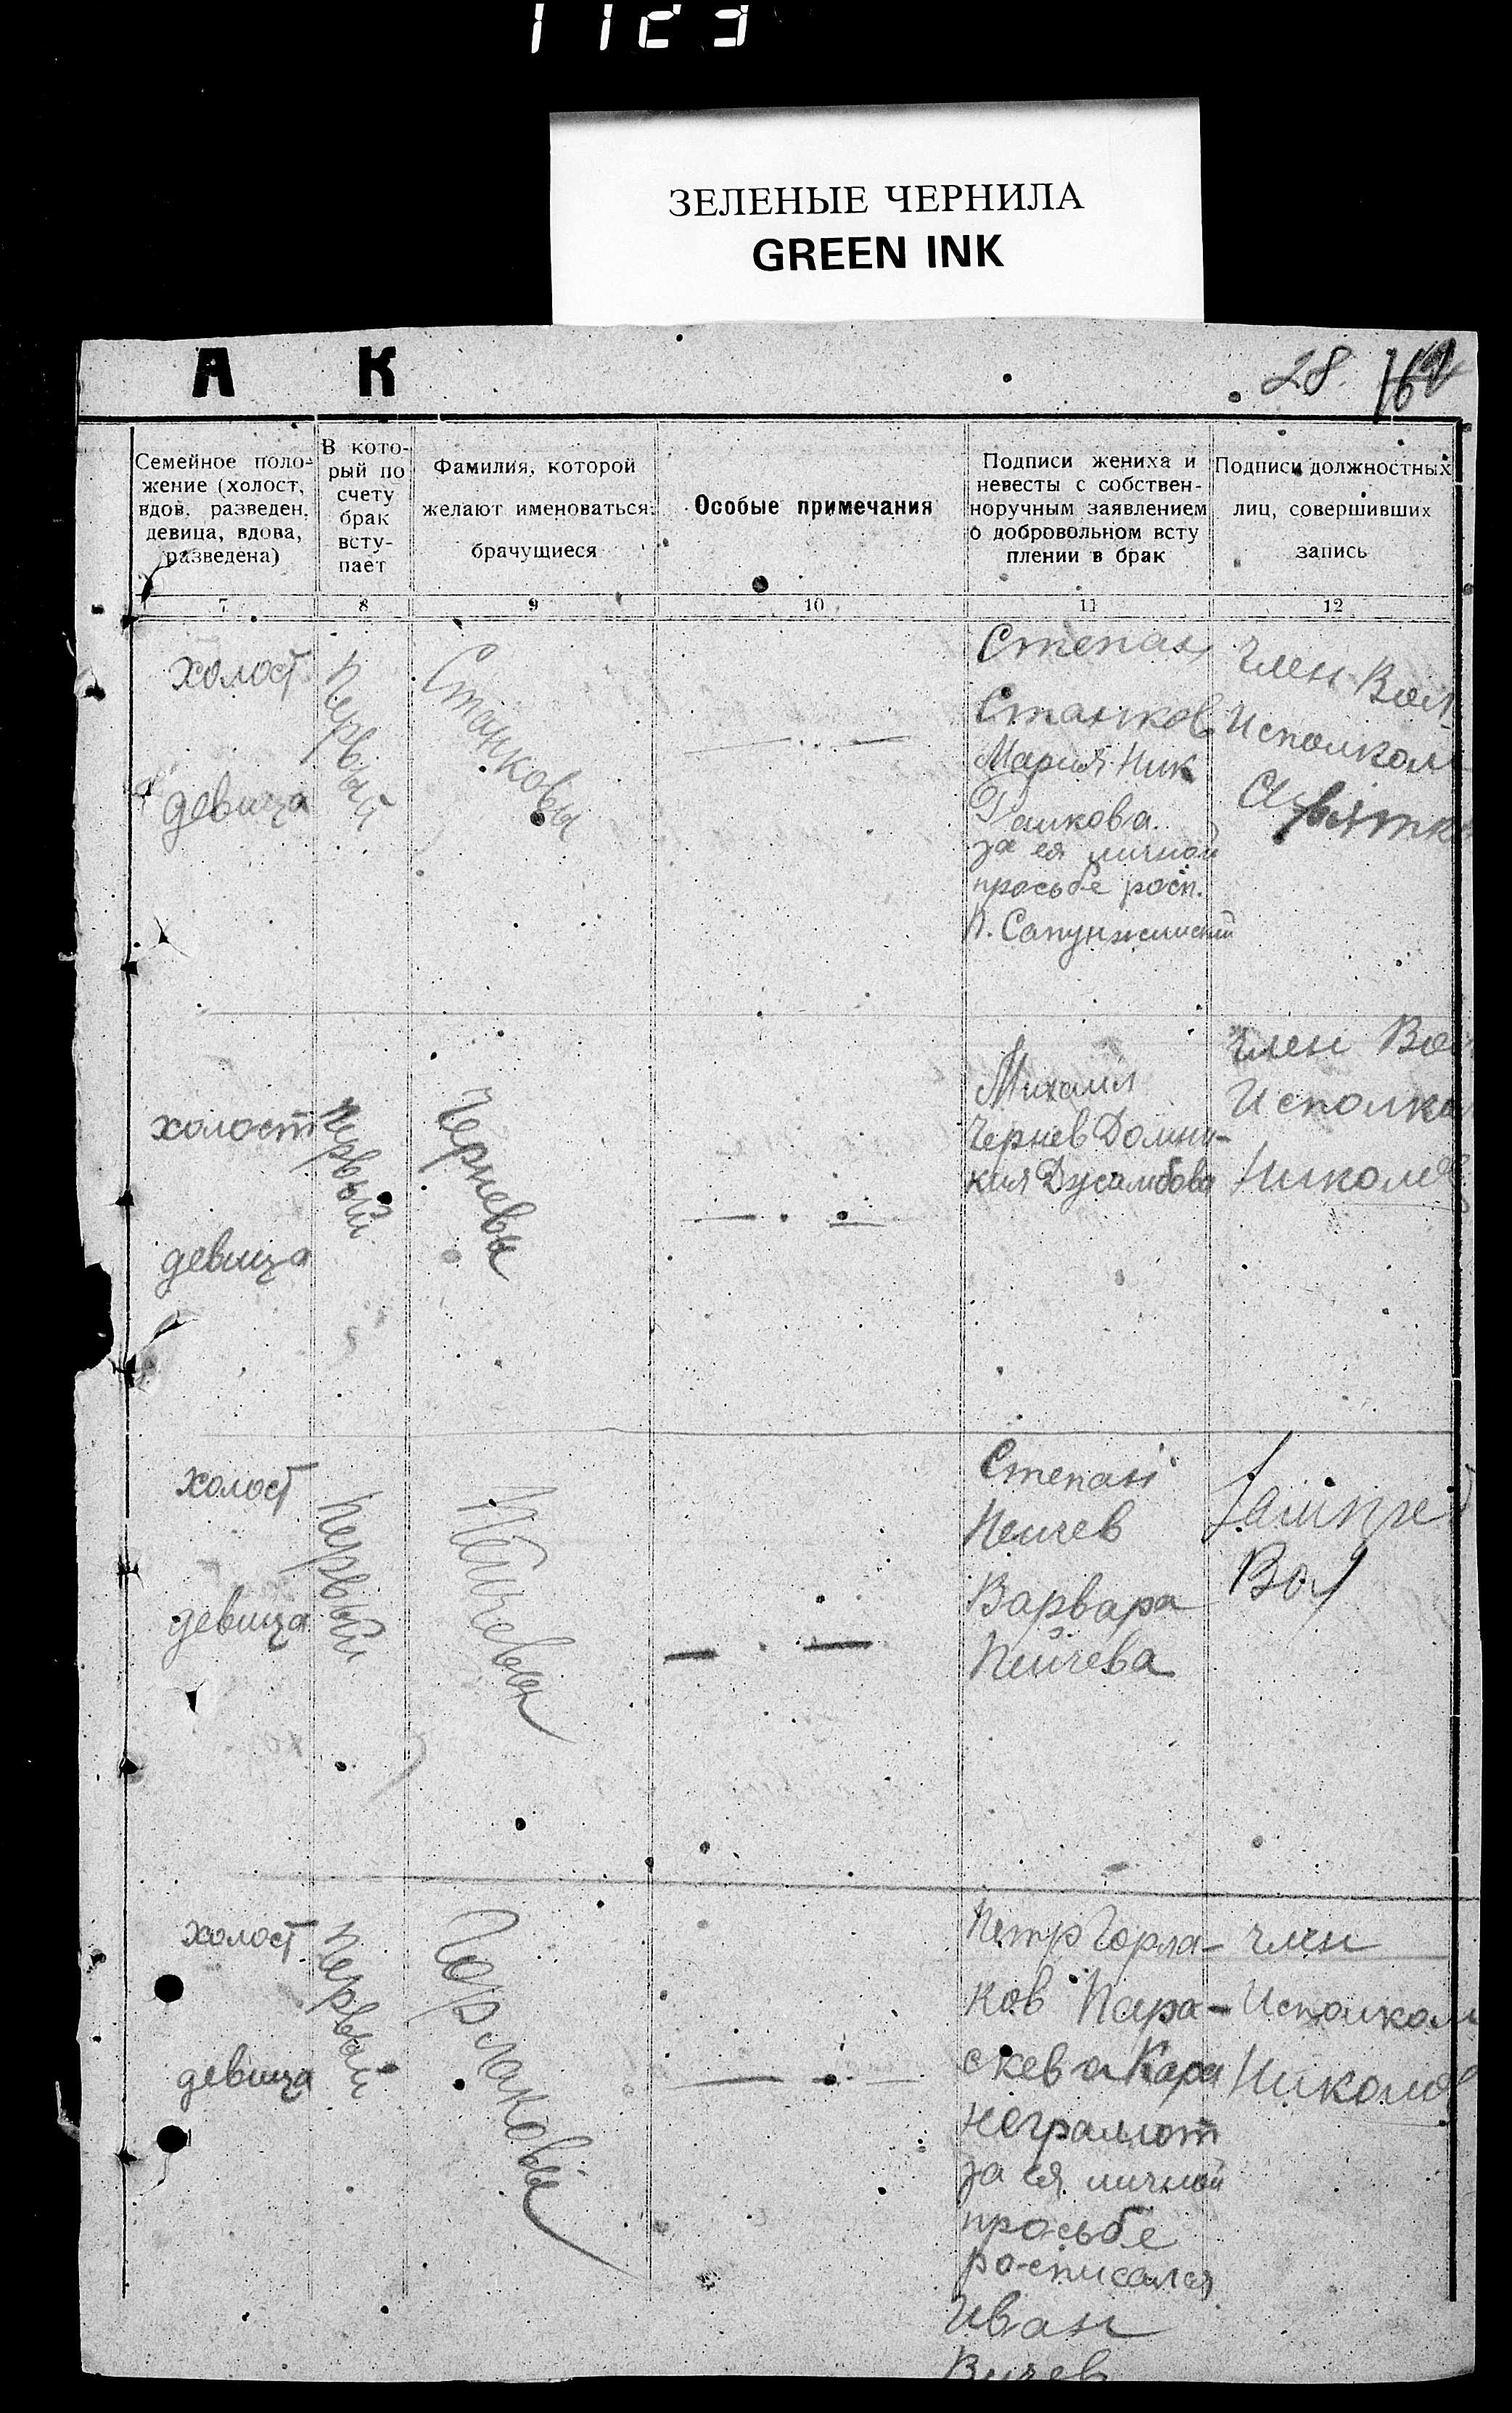 1123
ЗЕЛЕНЫЕ ЧЕРНИЛА
GREEN INK
А К
28. 162
Семейное поло-
жение (холост,
вдов, разведен,
девица, вдова,
разведена)
В кото-
рый по
счету
брак
всту-
пает
Фамилия, которой
желают именоваться
брачущиеся
Особые примечания
Подписи жениха и
невесты с собствен-
норучным заявлением
о добровольном всту
плении в брак
Подписи должностных
лиц, совершивших
запись
7 8 9 10 11 12
холост
девица
Первый
Станковы
Степан
Станков
Мария Ник
за ея личной
просьбе росп.
Член Вол
Исполком
холост
девица
Первый
Черневы
Михаил
Чернев Домни-
кия
Член Вол
Исполком
Николов
холост
девица
Первый
Пейчевы
Степан
Пейчев
Варвара
Пейчева
холост
девица
Первый
Горлаковы
Петр Горла-
ков Пара-
скева Кара
неграмот
за ея личной
просьбе
росписался
Иван
Вичев
член
Исполком
Николов